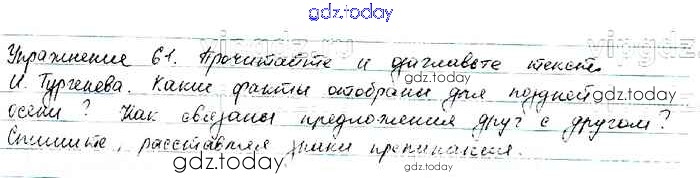 gdz.today
Упражнение 61. Прочитайте и озаглавьте текст
И. Тургенева. Какие факты отобраны для поздней
gdz.today
осени? Как связаны предложения друг с другом?
Спишите, расставляя знаки препинания.
gdz.today
gdz.today